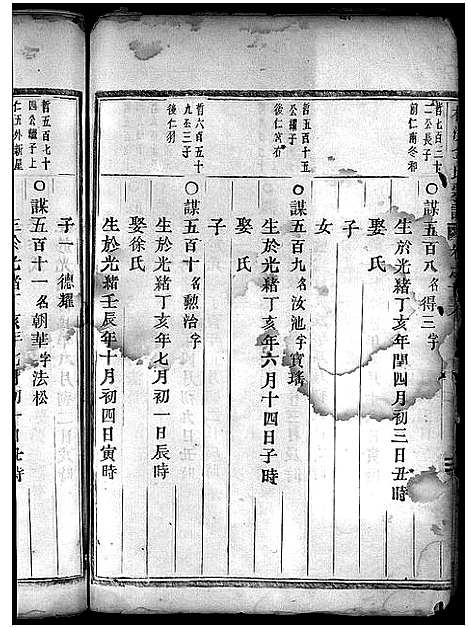 哲七百三十
二公長子
前仁南冬和
○謀五百八名得三字
生於光緒丁亥年閏四月初三日丑時
娶 氏
子
女
哲五百十五
公繼子
後仁
○謀五百九名汝池字寶瑤
生於光緒丁亥年六月十四日子時
娶 氏
子
哲六百五十
九公三子
後仁
○謀五百十名勲治字
生於光緒丁亥年七月初一日辰時
娶徐氏
生於光緒壬辰年十月初四日寅時
子一 德耀
哲五百七十
四公繼子上
仁五外新屋
○謀五百十一名朝華字法松
生於光緒丁亥年七月初一日 時